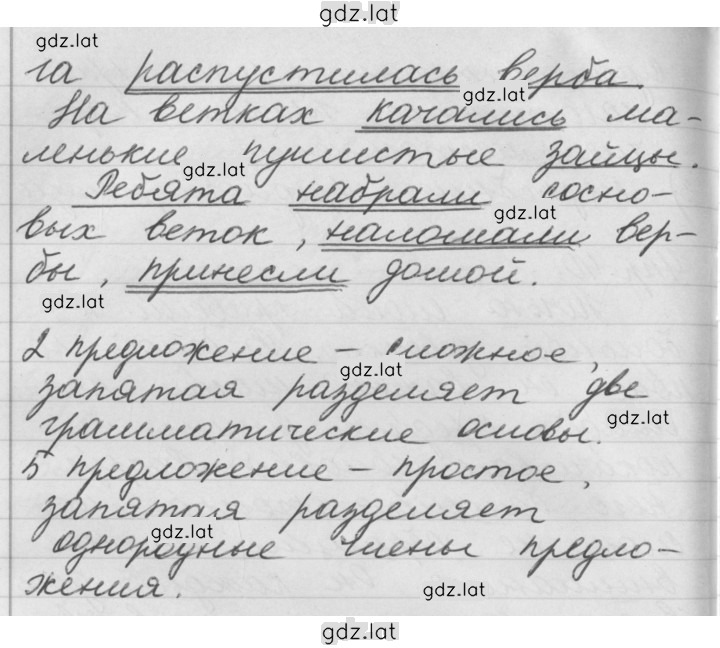 gdz.lat
gdz.lat
га распустилась верба.
gdz.lat
На ветках качались ма-
ленькие пушистые зайцы.
gdz.lat
Ребята набрали сосно-
gdz.lat
вых веток, наломали вер-
бы, принесли домой.
gdz.lat
2 предложение – сложное,
gdz.lat
запятая разделяет две
gdz.lat
грамматические основы.
5 предложение – простое,
gdz.lat
запятая разделяет
gdz.lat
однородные члены предло-
жения.
gdz.lat
gdz.lat